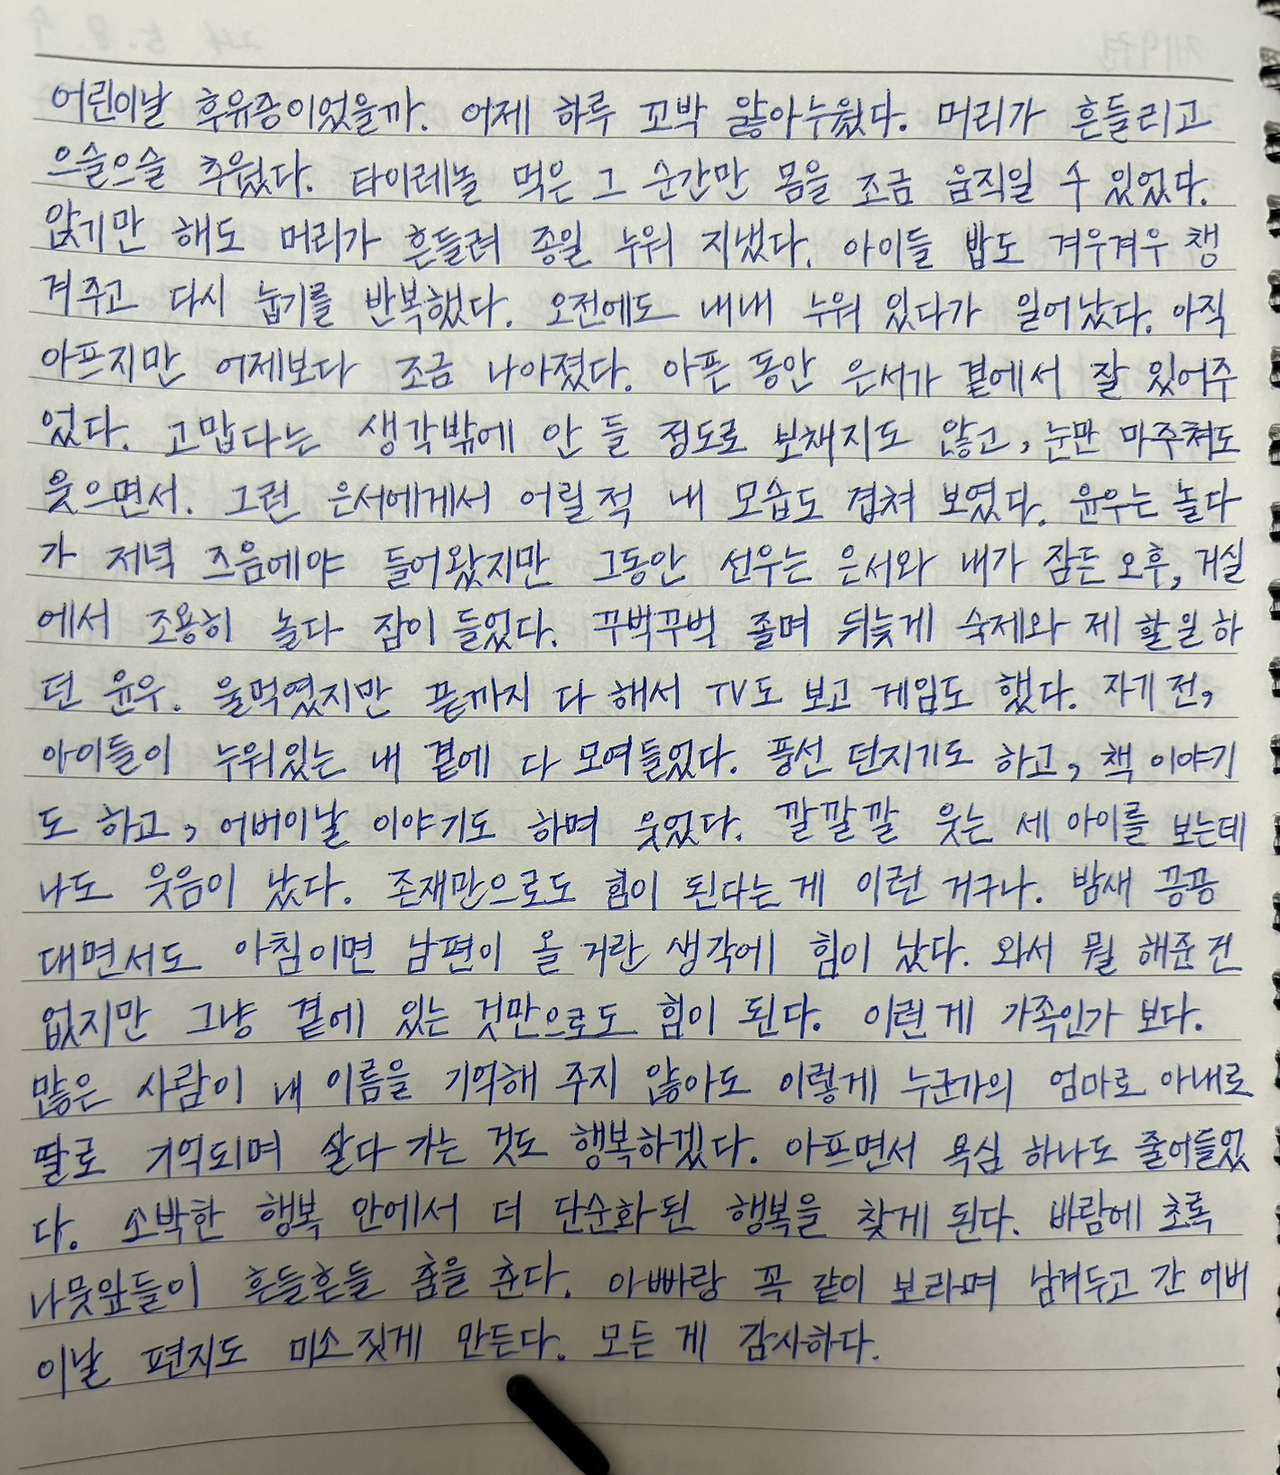 어린이날 후유증이었을까. 어제 하루 꼬박 앓아누웠다. 머리가 흔들리고
으슬으슬 추웠다. 타이레놀 먹은 그 순간만 몸을 조금 움직일 수 있었다.
앉기만 해도 머리가 흔들려 종일 누워 지냈다. 아이들 밥도 겨우겨우 챙
겨주고 다시 눕기를 반복했다. 오전에도 내내 누워 있다가 일어났다. 아직
아프지만 어제보다 조금 나아졌다. 아픈 동안 은서가 곁에서 잘 있어주
었다. 고맙다는 생각밖에 안 들 정도로 보채지도 않고, 눈만 마주쳐도
웃으면서. 그런 은서에게서 어릴적 내 모습도 겹쳐 보였다. 윤우는 놀다
가 저녁 즈음에야 들어왔지만 그동안 선우는 은서와 내가 잠든 오후, 거실
에서 조용히 놀다 잠이 들었다. 꾸벅꾸벅 졸며 뒤늦게 숙제와 제 할일 하
던 윤우. 울먹였지만 끝까지 다 해서 TV도 보고 게임도 했다. 자기 전,
아이들이 누워있는 내 곁에 다 모여들었다. 풍선 던지기도 하고, 책 이야기
도 하고, 어버이날 이야기도 하며 웃었다. 깔깔깔 웃는 세 아이를 보는데
나도 웃음이 났다. 존재만으로도 힘이 된다는 게 이런 거구나. 밤새 끙끙
대면서도 아침이면 남편이 올 거란 생각에 힘이 났다. 와서 뭘 해준 건
없지만 그냥 곁에 있는 것만으로도 힘이 된다. 이런 게 가족인가 보다.
많은 사람이 내 이름을 기억해 주지 않아도 이렇게 누군가의 엄마로 아내로
딸로 기억되며 살다 가는 것도 행복하겠다. 아프면서 욕심 하나도 줄어들었
다. 소박한 행복 안에서 더 단순화된 행복을 찾게 된다. 바람에 초록
나뭇잎들이 흔들흔들 춤을 춘다. 아빠랑 꼭 같이 보라며 남겨두고 간 어버
이날 편지도 미소 짓게 만든다. 모든 게 감사하다.